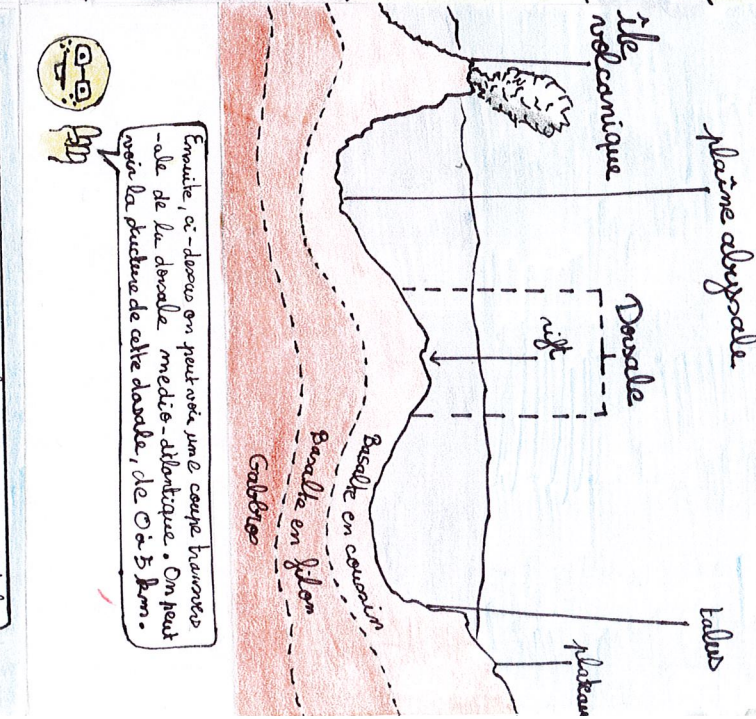 île
volcanique
plaine abyssale
Dorsale
rift
talus
plateau
Basalte en coussin
Basalte en filon
Gabbros
Ensuite, ci-dessus on peut voir une coupe transvers
-ale de la dorsale medio-atlantique. On peut
voir la structure de cette dorsale, de 0 à 5 km.